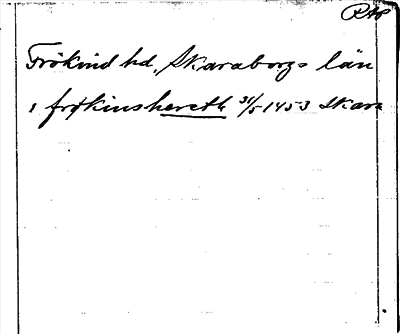 RAP
Frökind hd, Skaraborgs län
i frøkinshereth 31/5 1453 Skara